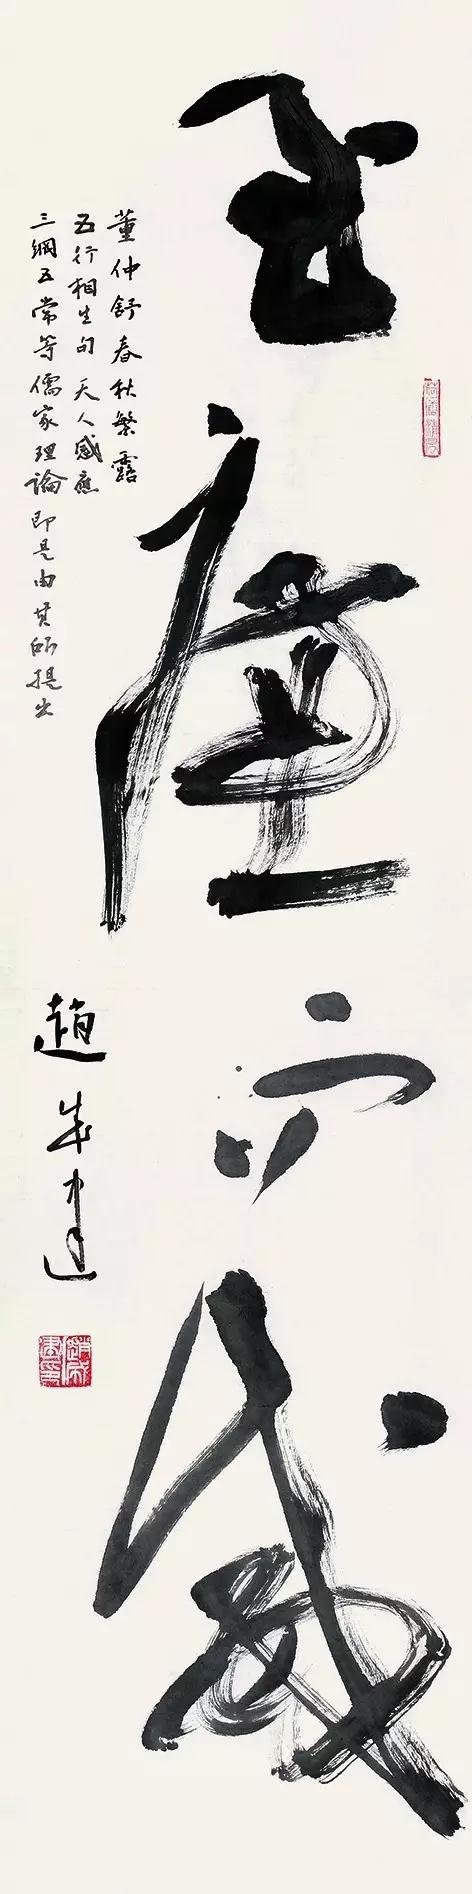 至廉而威
董仲舒春秋繁露
五行相生句 天人感應
三綱五常等儒家理論即是由其所提出
趙成建